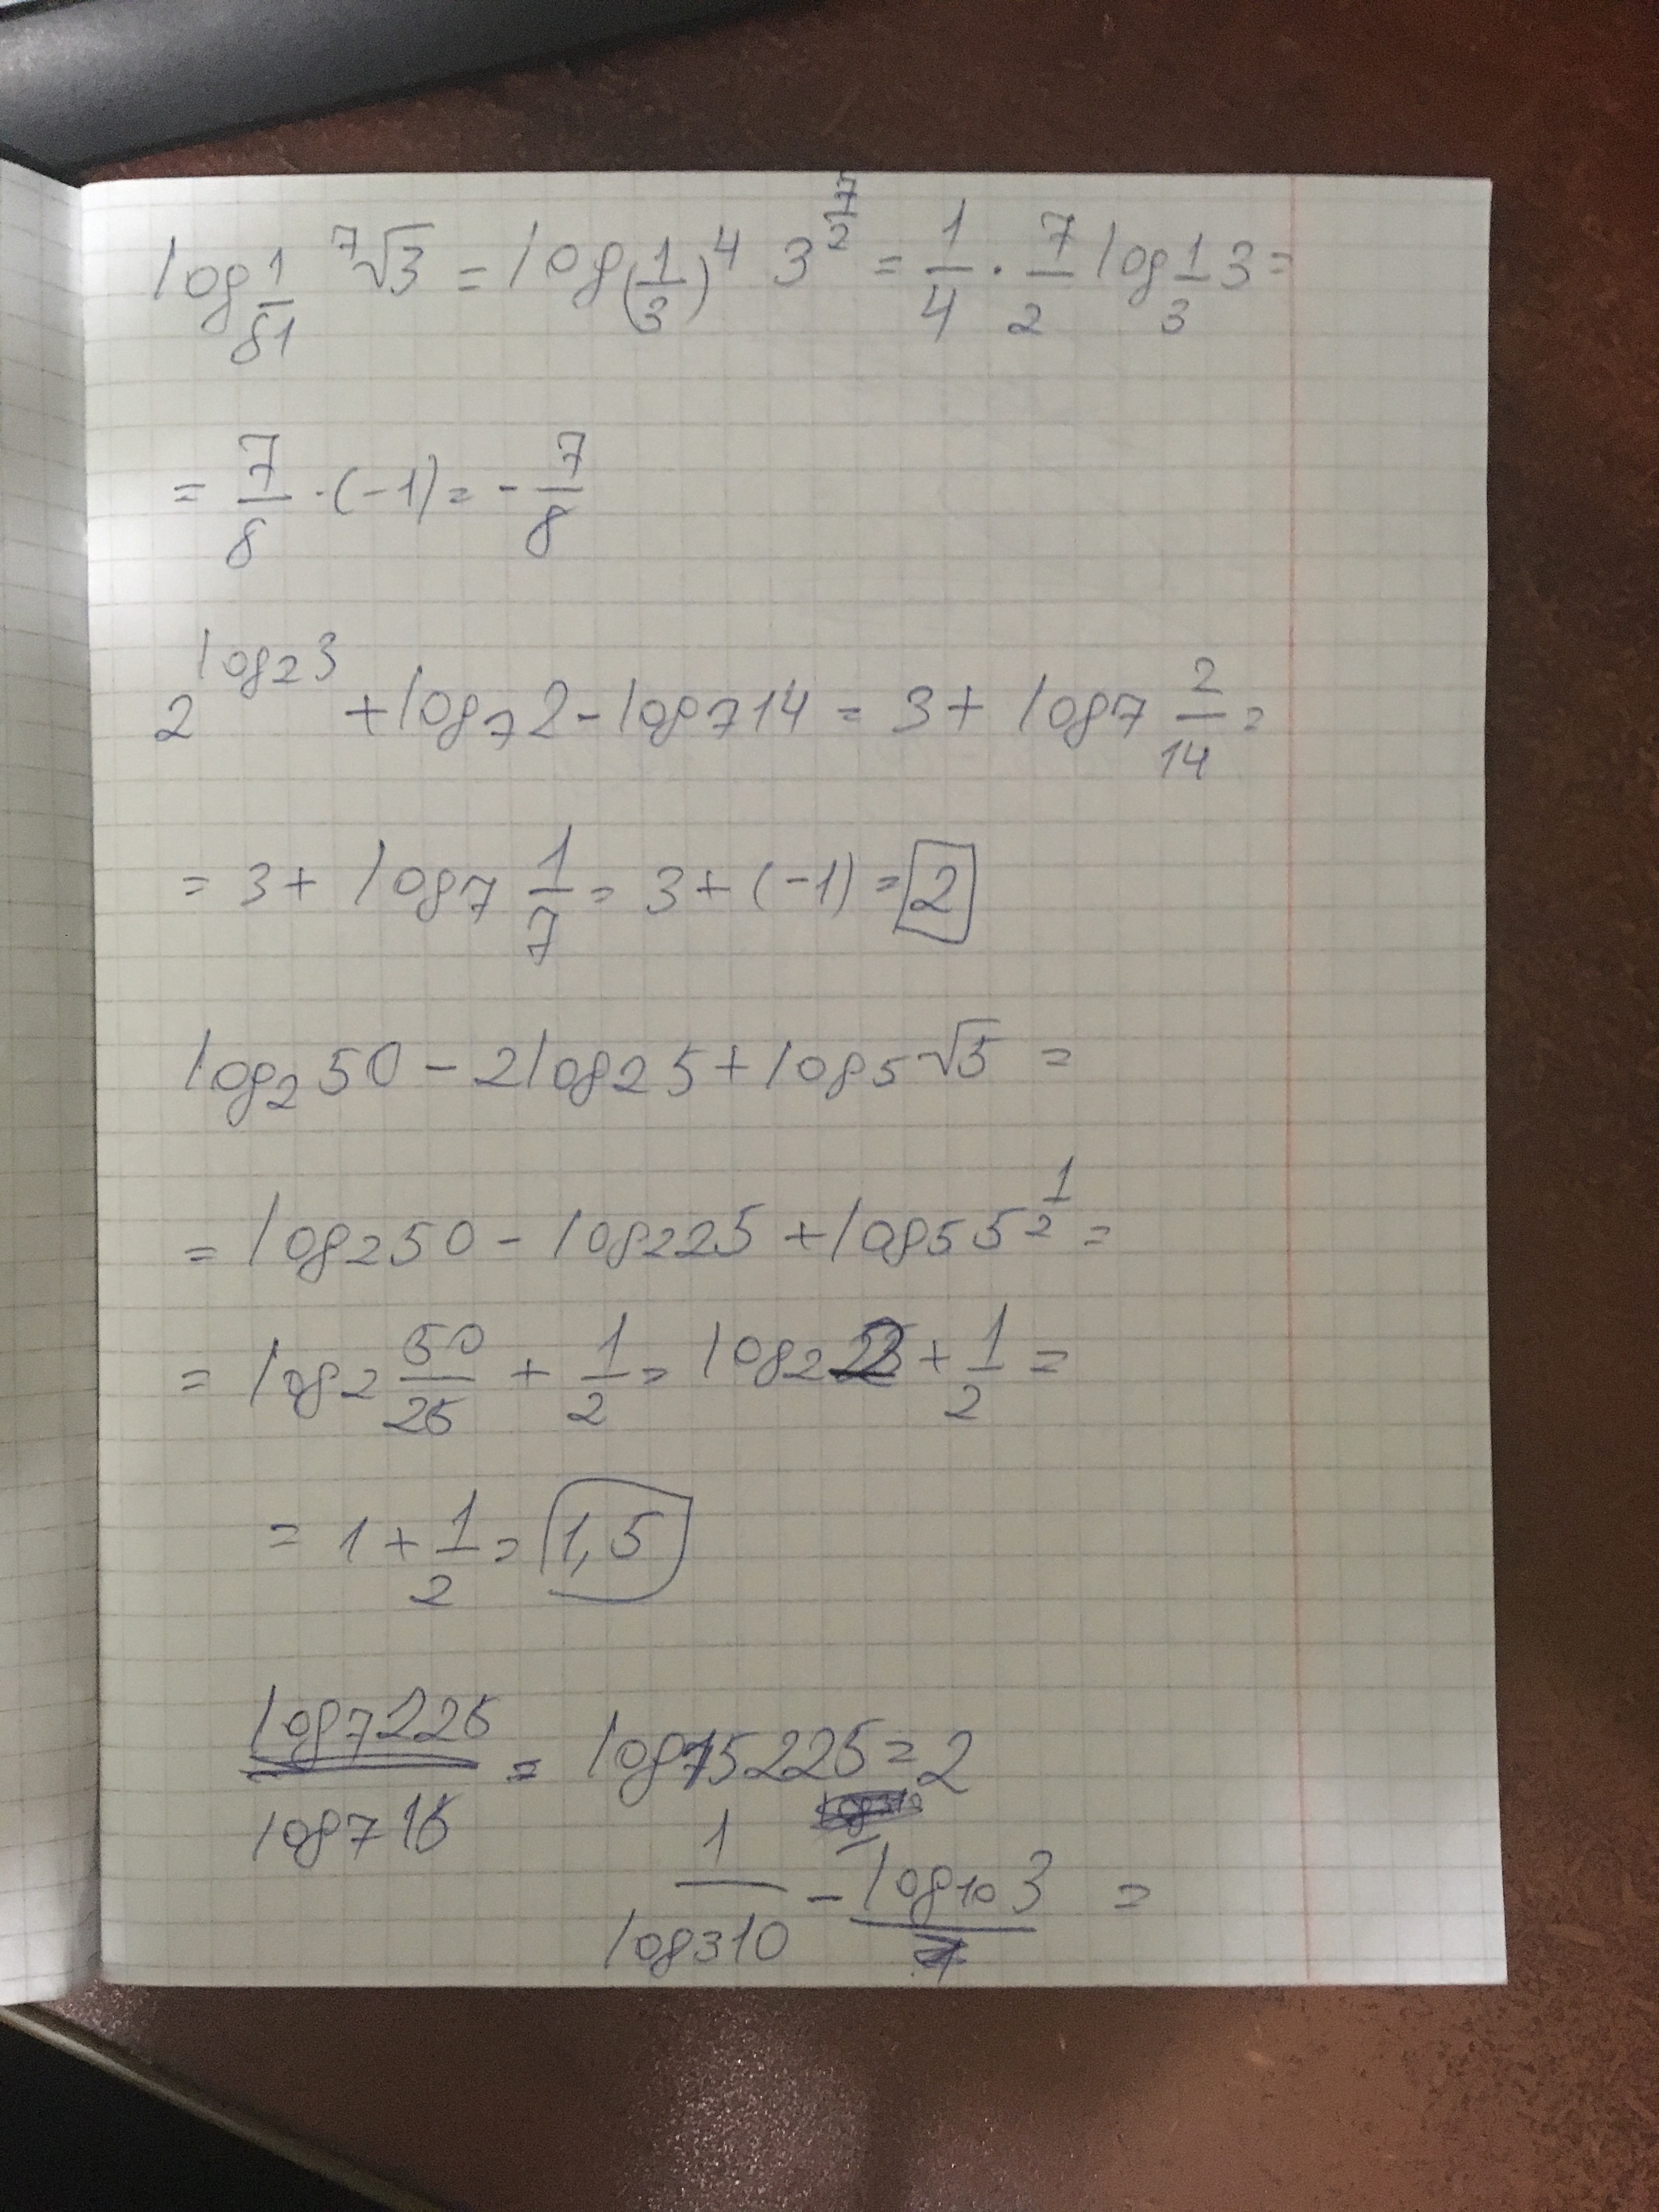 log_{1/81} ⁷√3 = log_{(1/3)^4} 3^{7/2} = 1/4 · 7/2 log_{1/3} 3 =
= 7/8 · (-1) = - 7/8
2^{log_2 3} + log_7 2 - log_7 14 = 3 + log_7 2/14 =
= 3 + log_7 1/7 = 3 + (-1) = 2
log_2 50 - 2 log_2 5 + log_5 √5 =
= log_2 50 - log_2 25 + log_5 5^{1/2} =
= log_2 50/25 + 1/2 = log_2 2 + 1/2 =
= 1 + 1/2 = 1,5
log_7 225 / log_7 15 = log_15 225 = 2
1 / log_3 10 - log_10 3 =